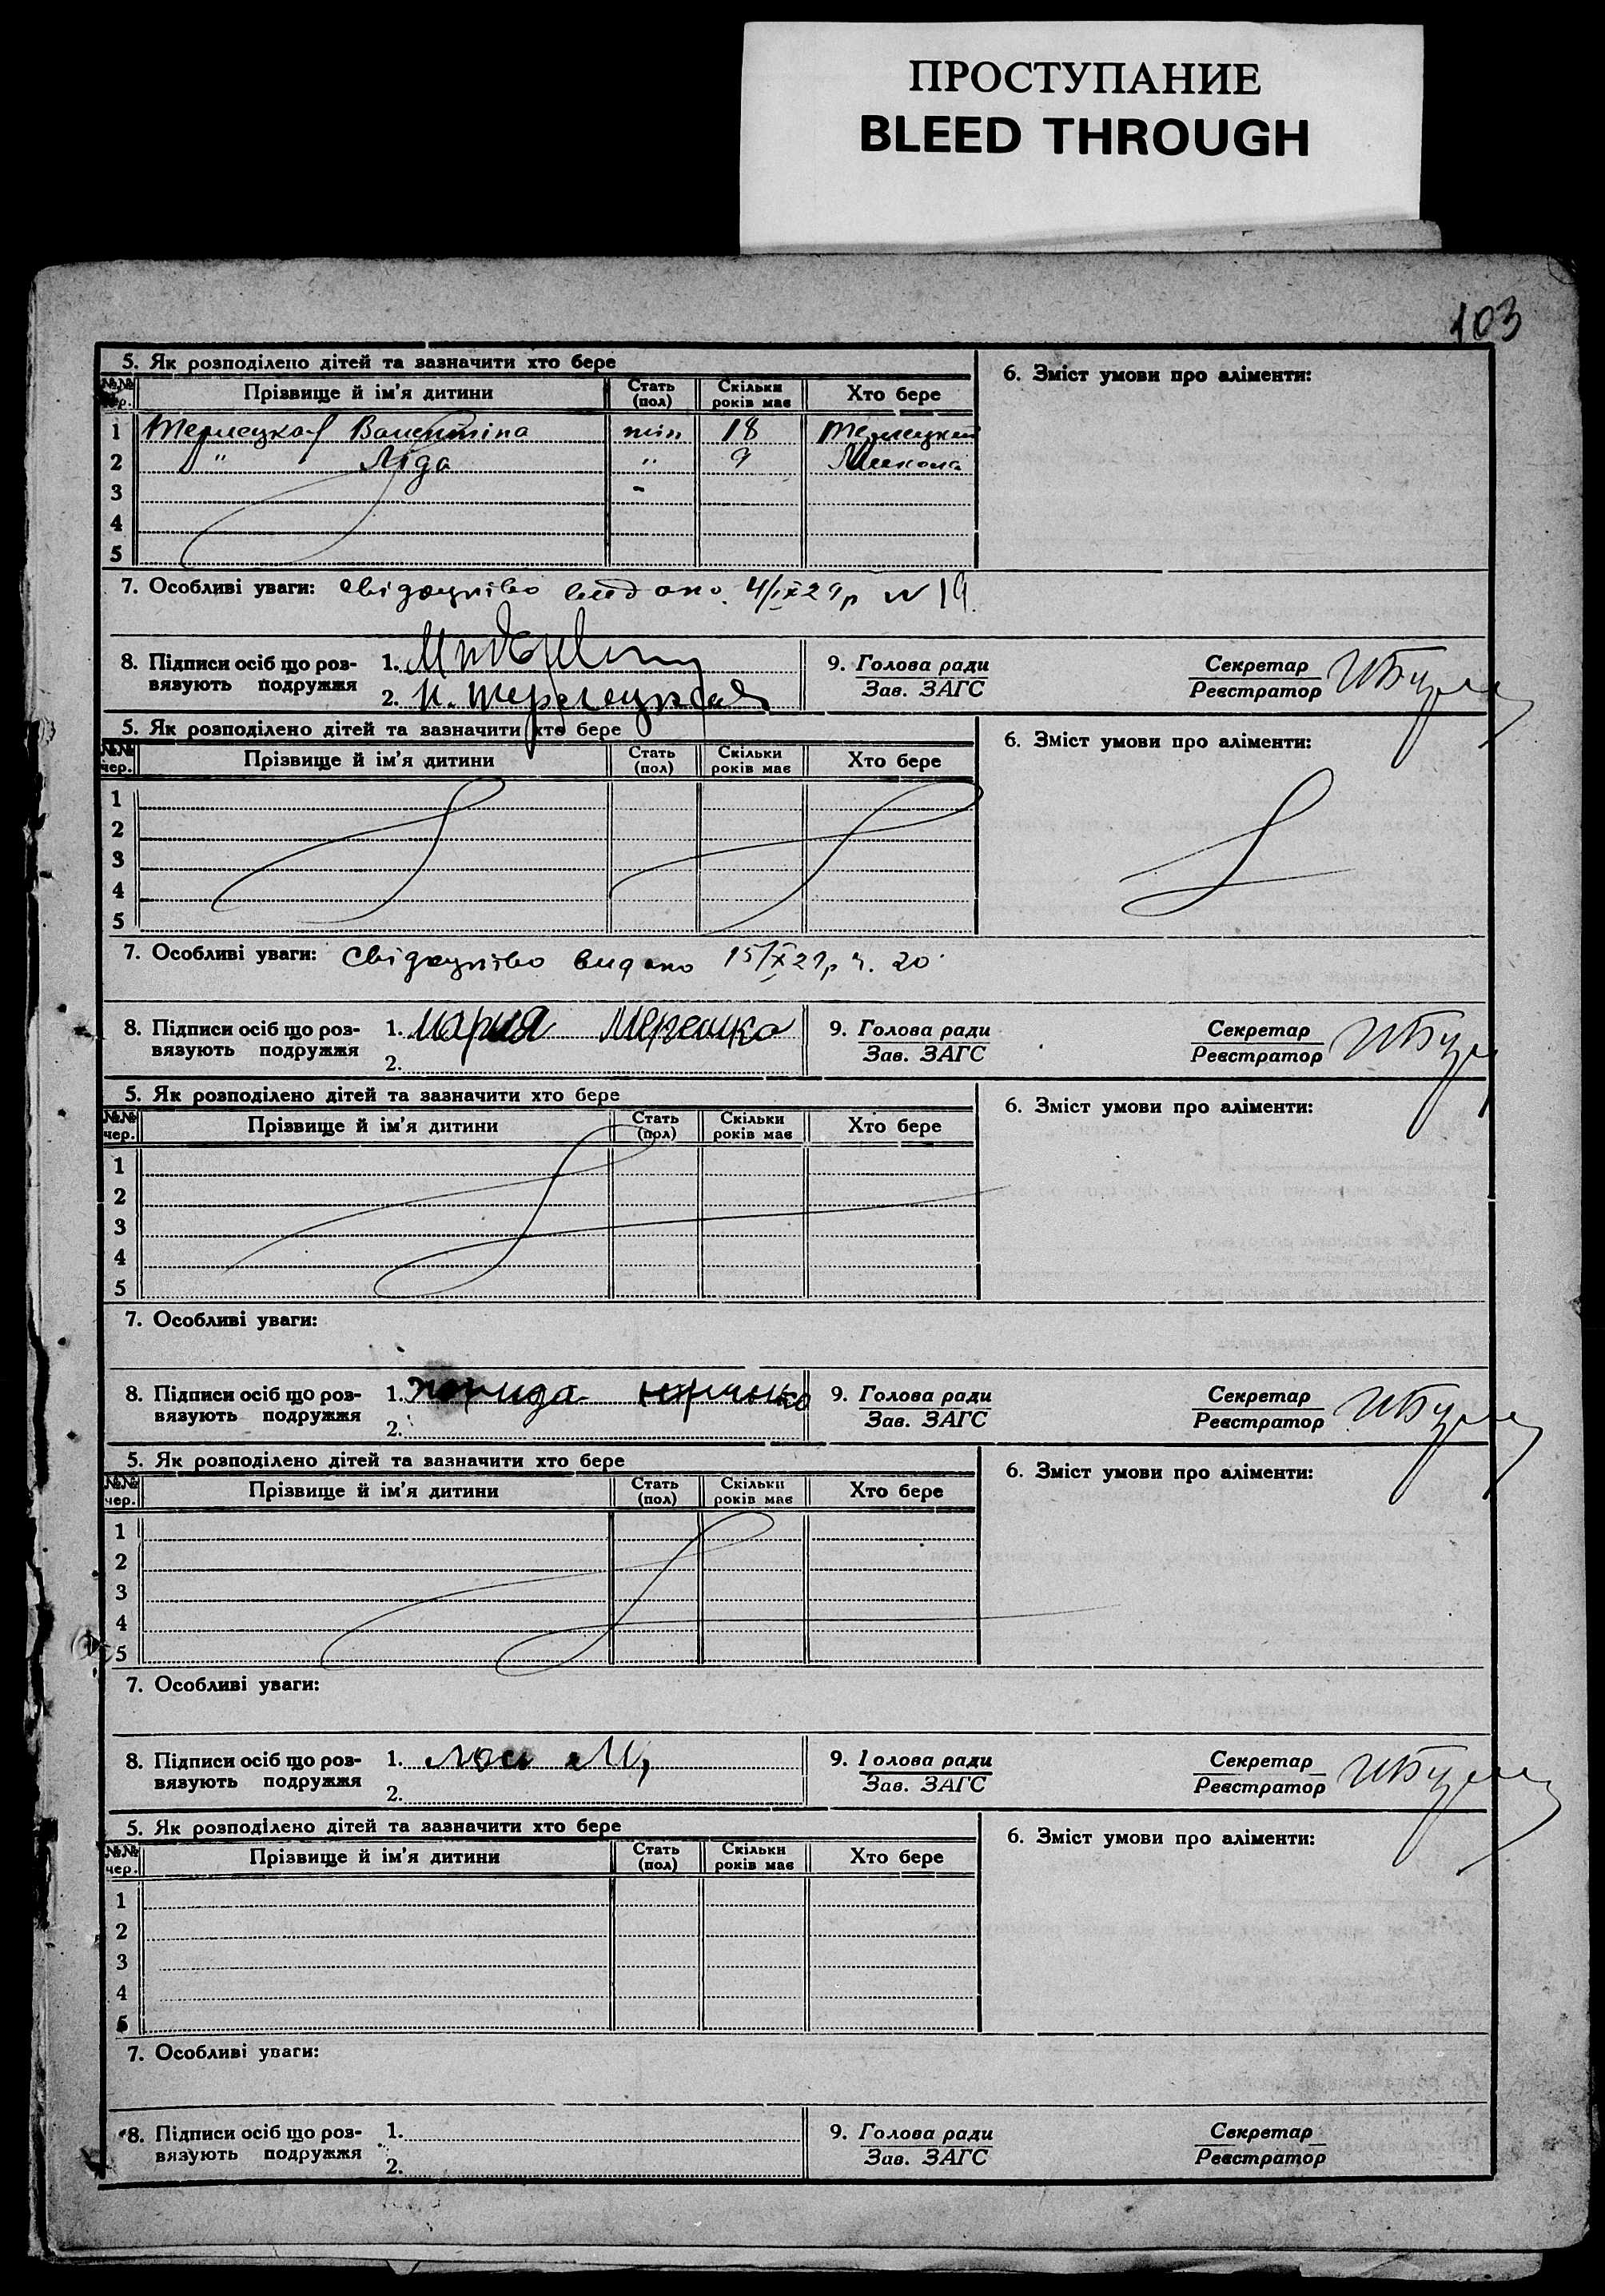 ПРОСТУПАНИЕ
BLEED THROUGH
103
5. Як розподілено дітей та зазначити хто бере
6. Зміст умови про аліменти:
№№ чер. Прізвище й ім'я дитини Стать (пол) Скільки років має Хто бере
1 Терлецкая Валентіна 18 Терлецкий
2 " Ліда " 9 Микола
3
4
5
7. Особливі уваги: Свідоцтво видано 4/IX 29р N 19.
8. Підписи осіб що роз- 1.
вязують подружжя 2. Н. Терлецкая
9. Голова ради
Зав. ЗАГС
Секретар
Реєстратор
5. Як розподілено дітей та зазначити хто бере
6. Зміст умови про аліменти:
№№ чер. Прізвище й ім'я дитини Стать (пол) Скільки років має Хто бере
1
2
3
4
5
7. Особливі уваги: Свідоцтво видано 15/X 29р ч. 20
8. Підписи осіб що роз- 1. Мария
вязують подружжя 2.
9. Голова ради
Зав. ЗАГС
Секретар
Реєстратор
5. Як розподілено дітей та зазначити хто бере
6. Зміст умови про аліменти:
№№ чер. Прізвище й ім'я дитини Стать (пол) Скільки років має Хто бере
1
2
3
4
5
7. Особливі уваги:
8. Підписи осіб що роз- 1.
вязують подружжя 2.
9. Голова ради
Зав. ЗАГС
Секретар
Реєстратор
5. Як розподілено дітей та зазначити хто бере
6. Зміст умови про аліменти:
№№ чер. Прізвище й ім'я дитини Стать (пол) Скільки років має Хто бере
1
2
3
4
5
7. Особливі уваги:
8. Підписи осіб що роз- 1.
вязують подружжя 2.
9. Голова ради
Зав. ЗАГС
Секретар
Реєстратор
5. Як розподілено дітей та зазначити хто бере
6. Зміст умови про аліменти:
№№ чер. Прізвище й ім'я дитини Стать (пол) Скільки років має Хто бере
1
2
3
4
5
7. Особливі уваги:
8. Підписи осіб що роз- 1.
вязують подружжя 2.
9. Голова ради
Зав. ЗАГС
Секретар
Реєстратор